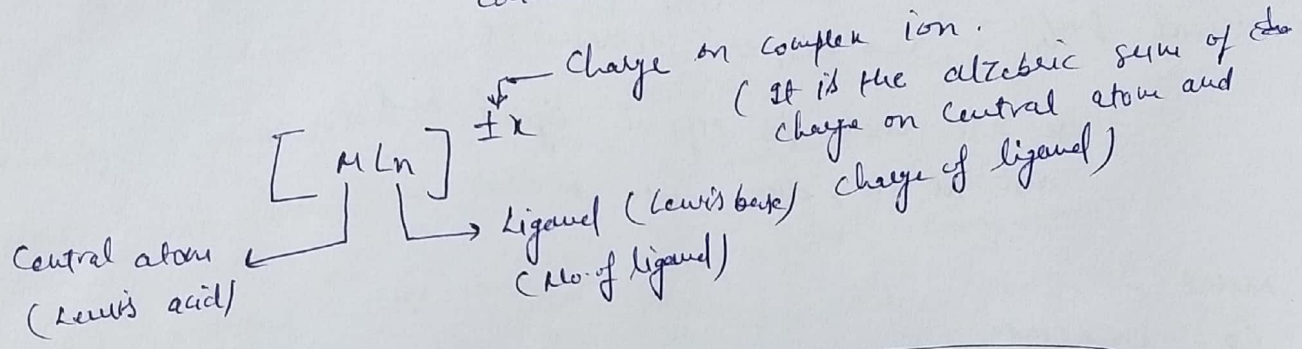 Charge on complex ion.
(It is the alzebric sum of
charge on central atom and
charge of ligand)
±x
[MLn]
Ligand (Lewis base)
(No. of ligand)
Central atom
(Lewis acid)